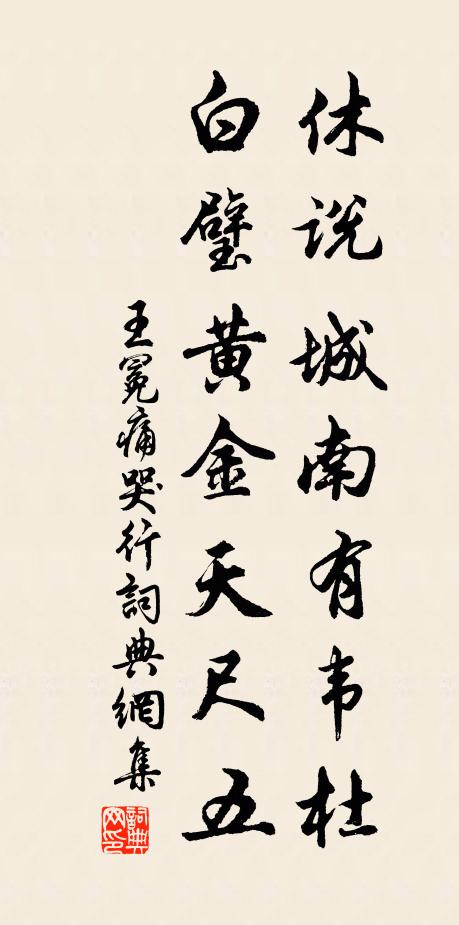 休说城南有韦杜
白璧黄金天尺五
王冕痛哭行詞典網集
詞典
网印